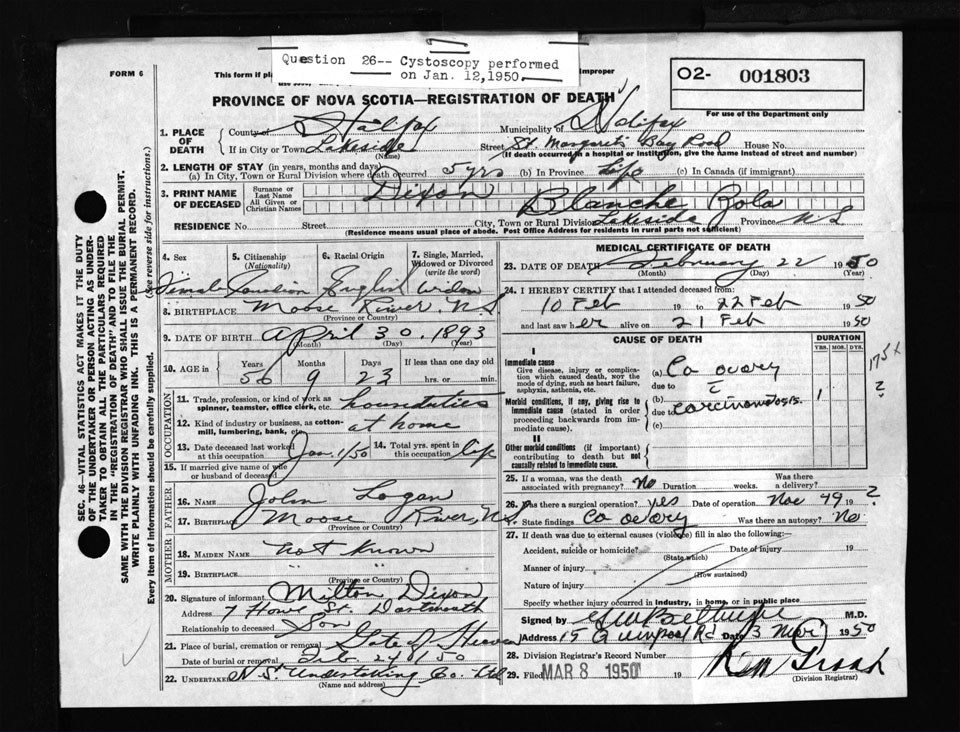 Question 26-- Cystoscopy performed
on Jan. 12,1950.
FORM 6
This form if pl
improper
O2- 001803
PROVINCE OF NOVA SCOTIA—REGISTRATION OF DEATH
For use of the Department only
1. PLACE OF DEATH
County of Halifax
Municipality of Halifax
If in City or Town Lakeside
(Name)
Street St. Margarets Bay Road House No.
(If death occurred in a hospital or institution, give the name instead of street and number)
2. LENGTH OF STAY (in years, months and days)
(a) In City, Town or Rural Division where death occurred 5 yrs (b) In Province Life (c) In Canada (if immigrant)
3. PRINT NAME OF DECEASED
Surname or Last Name Dixon
All Given or Christian Names Blanche Zola
RESIDENCE No. Street City, Town or Rural Division Lakeside Province N S
(Residence means usual place of abode. Post Office Address for residents in rural parts not sufficient)
4. Sex
5. Citizenship (Nationality)
6. Racial Origin
7. Single, Married, Widowed or Divorced (write the word)
Female Canadian English widow
8. BIRTHPLACE Moose River. N.S.
(Province or Country)
9. DATE OF BIRTH April 30. 1893
(Month) (Day) (Year)
10. AGE in Years Months Days If less than one day old
56 9 23 hrs. or min.
OCCUPATION
11. Trade, profession, or kind of work as spinner, teamster, office clerk, etc. houseduties
12. Kind of industry or business, as cotton-mill, lumbering, bank, etc. at home
13. Date deceased last worked at this occupation Jan. 1/50
14. Total yrs. spent in this occupation life
15. If married give name of wife or husband of deceased
FATHER
16. NAME John Logan
17. BIRTHPLACE Moose River, N.S.
(Province or Country)
MOTHER
18. MAIDEN NAME not known
19. BIRTHPLACE " "
(Province or Country)
20. Signature of informant Milton Dixon
Address 7 Howe St. Dartmouth
Relationship to deceased Son
21. Place of burial, cremation or removal Gate of Heaven
Date of burial or removal Feb. 24/50
22. UNDERTAKER N.S. Undertaking Co. Ltd
(Name and address)
MEDICAL CERTIFICATE OF DEATH
23. DATE OF DEATH February 22 1950
(Month) (Day) (Year)
24. I HEREBY CERTIFY that I attended deceased from:
10 Feb 19 to 22 Feb 1950
and last saw her alive on 21 Feb 1950
CAUSE OF DEATH
DURATION
YRS. MOS. DYS.
I
Immediate cause
Give disease, injury or complication which caused death, NOT the mode of dying, such as heart failure, asphyxia, asthenia, etc.
(a) Ca ovary
due to
Morbid conditions, if any, giving rise to immediate cause (stated in order proceeding backwards from immediate cause).
(b)
due to carcinomatosis. 1
(c)
II
Other morbid conditions (if important) contributing to death but not causally related to immediate cause.
175x
?
25. If a woman, was the death associated with pregnancy? No Duration weeks. Was there a delivery?
26. Was there a surgical operation? yes Date of operation Nov 49 19 ?
State findings Ca ovary Was there an autopsy? No
27. If death was due to external causes (violence) fill in also the following:—
Accident, suicide or homicide? Date of injury 19
(State which)
Manner of injury
(How sustained)
Nature of injury
Specify whether injury occurred in industry, in home, or in public place
Signed by M.D.
Address 15 Quinpool Rd Date 3 Mar 1950
28. Division Registrar's Record Number
29. Filed MAR 8 1950 19
(Division Registrar)
SEC. 46—VITAL STATISTICS ACT MAKES IT THE DUTY
OF THE UNDERTAKER OR PERSON ACTING AS UNDER-
TAKER TO OBTAIN ALL THE PARTICULARS REQUIRED
IN THE "REGISTRATION OF DEATH" AND TO FILE THE
SAME WITH THE DIVISION REGISTRAR WHO SHALL ISSUE THE BURIAL PERMIT.
WRITE PLAINLY WITH UNFADING INK. THIS IS A PERMANENT RECORD.
Every item of information should be carefully supplied. (See reverse side for instructions.)